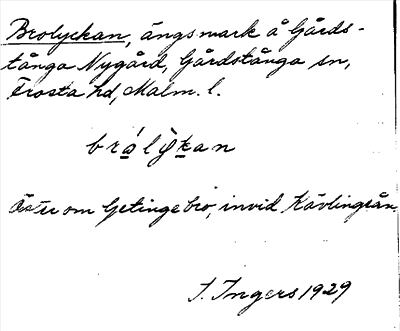 Brolyckan, ängsmark å Gårds-
tånga Nygård, Gårdstånga sn,
Frosta hd, Malm. l.
brálỳkan
Öster om Getingebro, invid Kävlingeån.
I. Ingers 1929